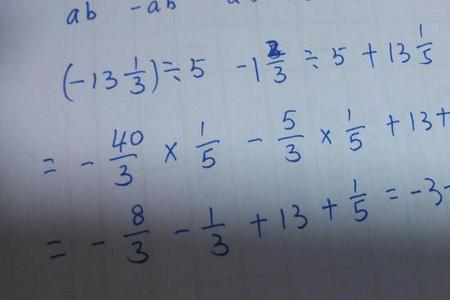 ab -ab
(-13 1/3) ÷ 5 -1 2/3 ÷ 5 + 13 1/5
= - 40/3 × 1/5 - 5/3 × 1/5 + 13 +
= - 8/3 - 1/3 + 13 + 1/5 = -3 -